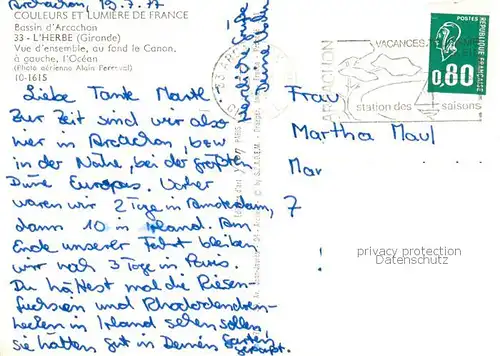 Arcachon, 19.7.77
COULEURS ET LUMIÈRE DE FRANCE
Bassin d'Arcachon
33 - L'HERBE (Gironde)
Vue d'ensemble, au fond le Canon,
à gauche, l'Océan
(Photo aérienne Alain Perceval)
10-1615
Liebe Tante Martl
Zur Zeit sind wir also
hier in Arcachon, bzw
in der Nähe, bei der größten
Düne Europas. Vorher
waren wir 2 Tage in Amsterdam,
dann 10 in Irland. Am
Ende unserer Fahrt bleiben
wir noch 3 Tage in Paris.
Du hättest mal die Riesen-
fuchsien und Rhododendren-
hecken in Irland sehen sollen,
sie hätten gut in Deinen Garten
gepaßt.
Herzliche Grüße
Deine
VACANCES
ARCACHON
station des
saisons
POSTES
0,80
REPUBLIQUE FRANÇAISE
Frau
Martha Maul
Mar
7
privacy protection
Datenschutz
!